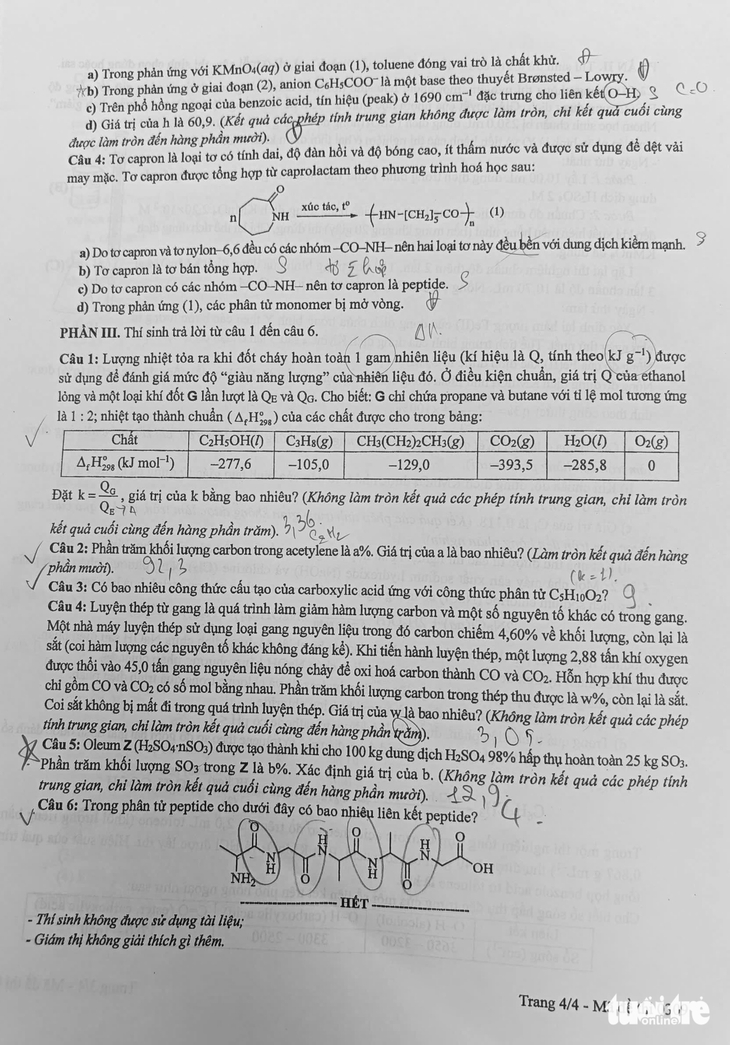 a) Trong phản ứng với KMnO₄(aq) ở giai đoạn (1), toluene đóng vai trò là chất khử. Đ
b) Trong phản ứng ở giai đoạn (2), anion C₆H₅COO⁻ là một base theo thuyết Brønsted – Lowry. Đ
c) Trên phổ hồng ngoại của benzoic acid, tín hiệu (peak) ở 1690 cm⁻¹ đặc trưng cho liên kết O–H. S C=O
d) Giá trị của h là 60,9. (Kết quả các phép tính trung gian không được làm tròn, chỉ kết quả cuối cùng
được làm tròn đến hàng phần mười). Đ
Câu 4: Tơ capron là loại tơ có tính dai, độ đàn hồi và độ bóng cao, ít thấm nước và được sử dụng để dệt vải
may mặc. Tơ capron được tổng hợp từ caprolactam theo phương trình hoá học sau:
O
n NH xúc tác, t⁰ (HN–[CH₂]₅–CO)ₙ (1)
a) Do tơ capron và tơ nylon–6,6 đều có các nhóm –CO–NH– nên hai loại tơ này đều bền với dung dịch kiềm mạnh. S
b) Tơ capron là tơ bán tổng hợp. S
c) Do tơ capron có các nhóm –CO–NH– nên tơ capron là peptide. S
d) Trong phản ứng (1), các phân tử monomer bị mở vòng. Đ
PHẦN III. Thí sinh trả lời từ câu 1 đến câu 6.
Câu 1: Lượng nhiệt tỏa ra khi đốt cháy hoàn toàn 1 gam nhiên liệu (kí hiệu là Q, tính theo kJ g⁻¹) được
sử dụng để đánh giá mức độ “giàu năng lượng” của nhiên liệu đó. Ở điều kiện chuẩn, giá trị Q của ethanol
lỏng và một loại khí đốt G lần lượt là Q_E và Q_G. Cho biết: G chỉ chứa propane và butane với tỉ lệ mol tương ứng
là 1 : 2; nhiệt tạo thành chuẩn (Δ_fH°₂₉₈) của các chất được cho trong bảng:
Chất C₂H₅OH(l) C₃H₈(g) CH₃(CH₂)₂CH₃(g) CO₂(g) H₂O(l) O₂(g)
Δ_fH°₂₉₈ (kJ mol⁻¹) –277,6 –105,0 –129,0 –393,5 –285,8 0
Đặt k = Q_G/Q_E, giá trị của k bằng bao nhiêu? (Không làm tròn kết quả các phép tính trung gian, chỉ làm tròn
kết quả cuối cùng đến hàng phần trăm). C₂H₂
Câu 2: Phần trăm khối lượng carbon trong acetylene là a%. Giá trị của a là bao nhiêu? (Làm tròn kết quả đến hàng
phần mười). 92,3
Câu 3: Có bao nhiêu công thức cấu tạo của carboxylic acid ứng với công thức phân tử C₅H₁₀O₂?
Câu 4: Luyện thép từ gang là quá trình làm giảm hàm lượng carbon và một số nguyên tố khác có trong gang.
Một nhà máy luyện thép sử dụng loại gang nguyên liệu trong đó carbon chiếm 4,60% về khối lượng, còn lại là
sắt (coi hàm lượng các nguyên tố khác không đáng kể). Khi tiến hành luyện thép, một lượng 2,88 tấn khí oxygen
được thổi vào 45,0 tấn gang nguyên liệu nóng chảy để oxi hoá carbon thành CO và CO₂. Hỗn hợp khí thu được
chỉ gồm CO và CO₂ có số mol bằng nhau. Phần trăm khối lượng carbon trong thép thu được là w%, còn lại là sắt.
Coi sắt không bị mất đi trong quá trình luyện thép. Giá trị của w là bao nhiêu? (Không làm tròn kết quả các phép
tính trung gian, chỉ làm tròn kết quả cuối cùng đến hàng phần trăm).
Câu 5: Oleum Z (H₂SO₄·nSO₃) được tạo thành khi cho 100 kg dung dịch H₂SO₄ 98% hấp thụ hoàn toàn 25 kg SO₃.
Phần trăm khối lượng SO₃ trong Z là b%. Xác định giá trị của b. (Không làm tròn kết quả các phép tính
trung gian, chỉ làm tròn kết quả cuối cùng đến hàng phần mười). 12,9
Câu 6: Trong phân tử peptide cho dưới đây có bao nhiêu liên kết peptide? 4
O H O H O
N N
NH₂ N H O N H O OH
HẾT
- Thí sinh không được sử dụng tài liệu;
- Giám thị không giải thích gì thêm.
Trang 4/4 - M
tuổi trẻ
online